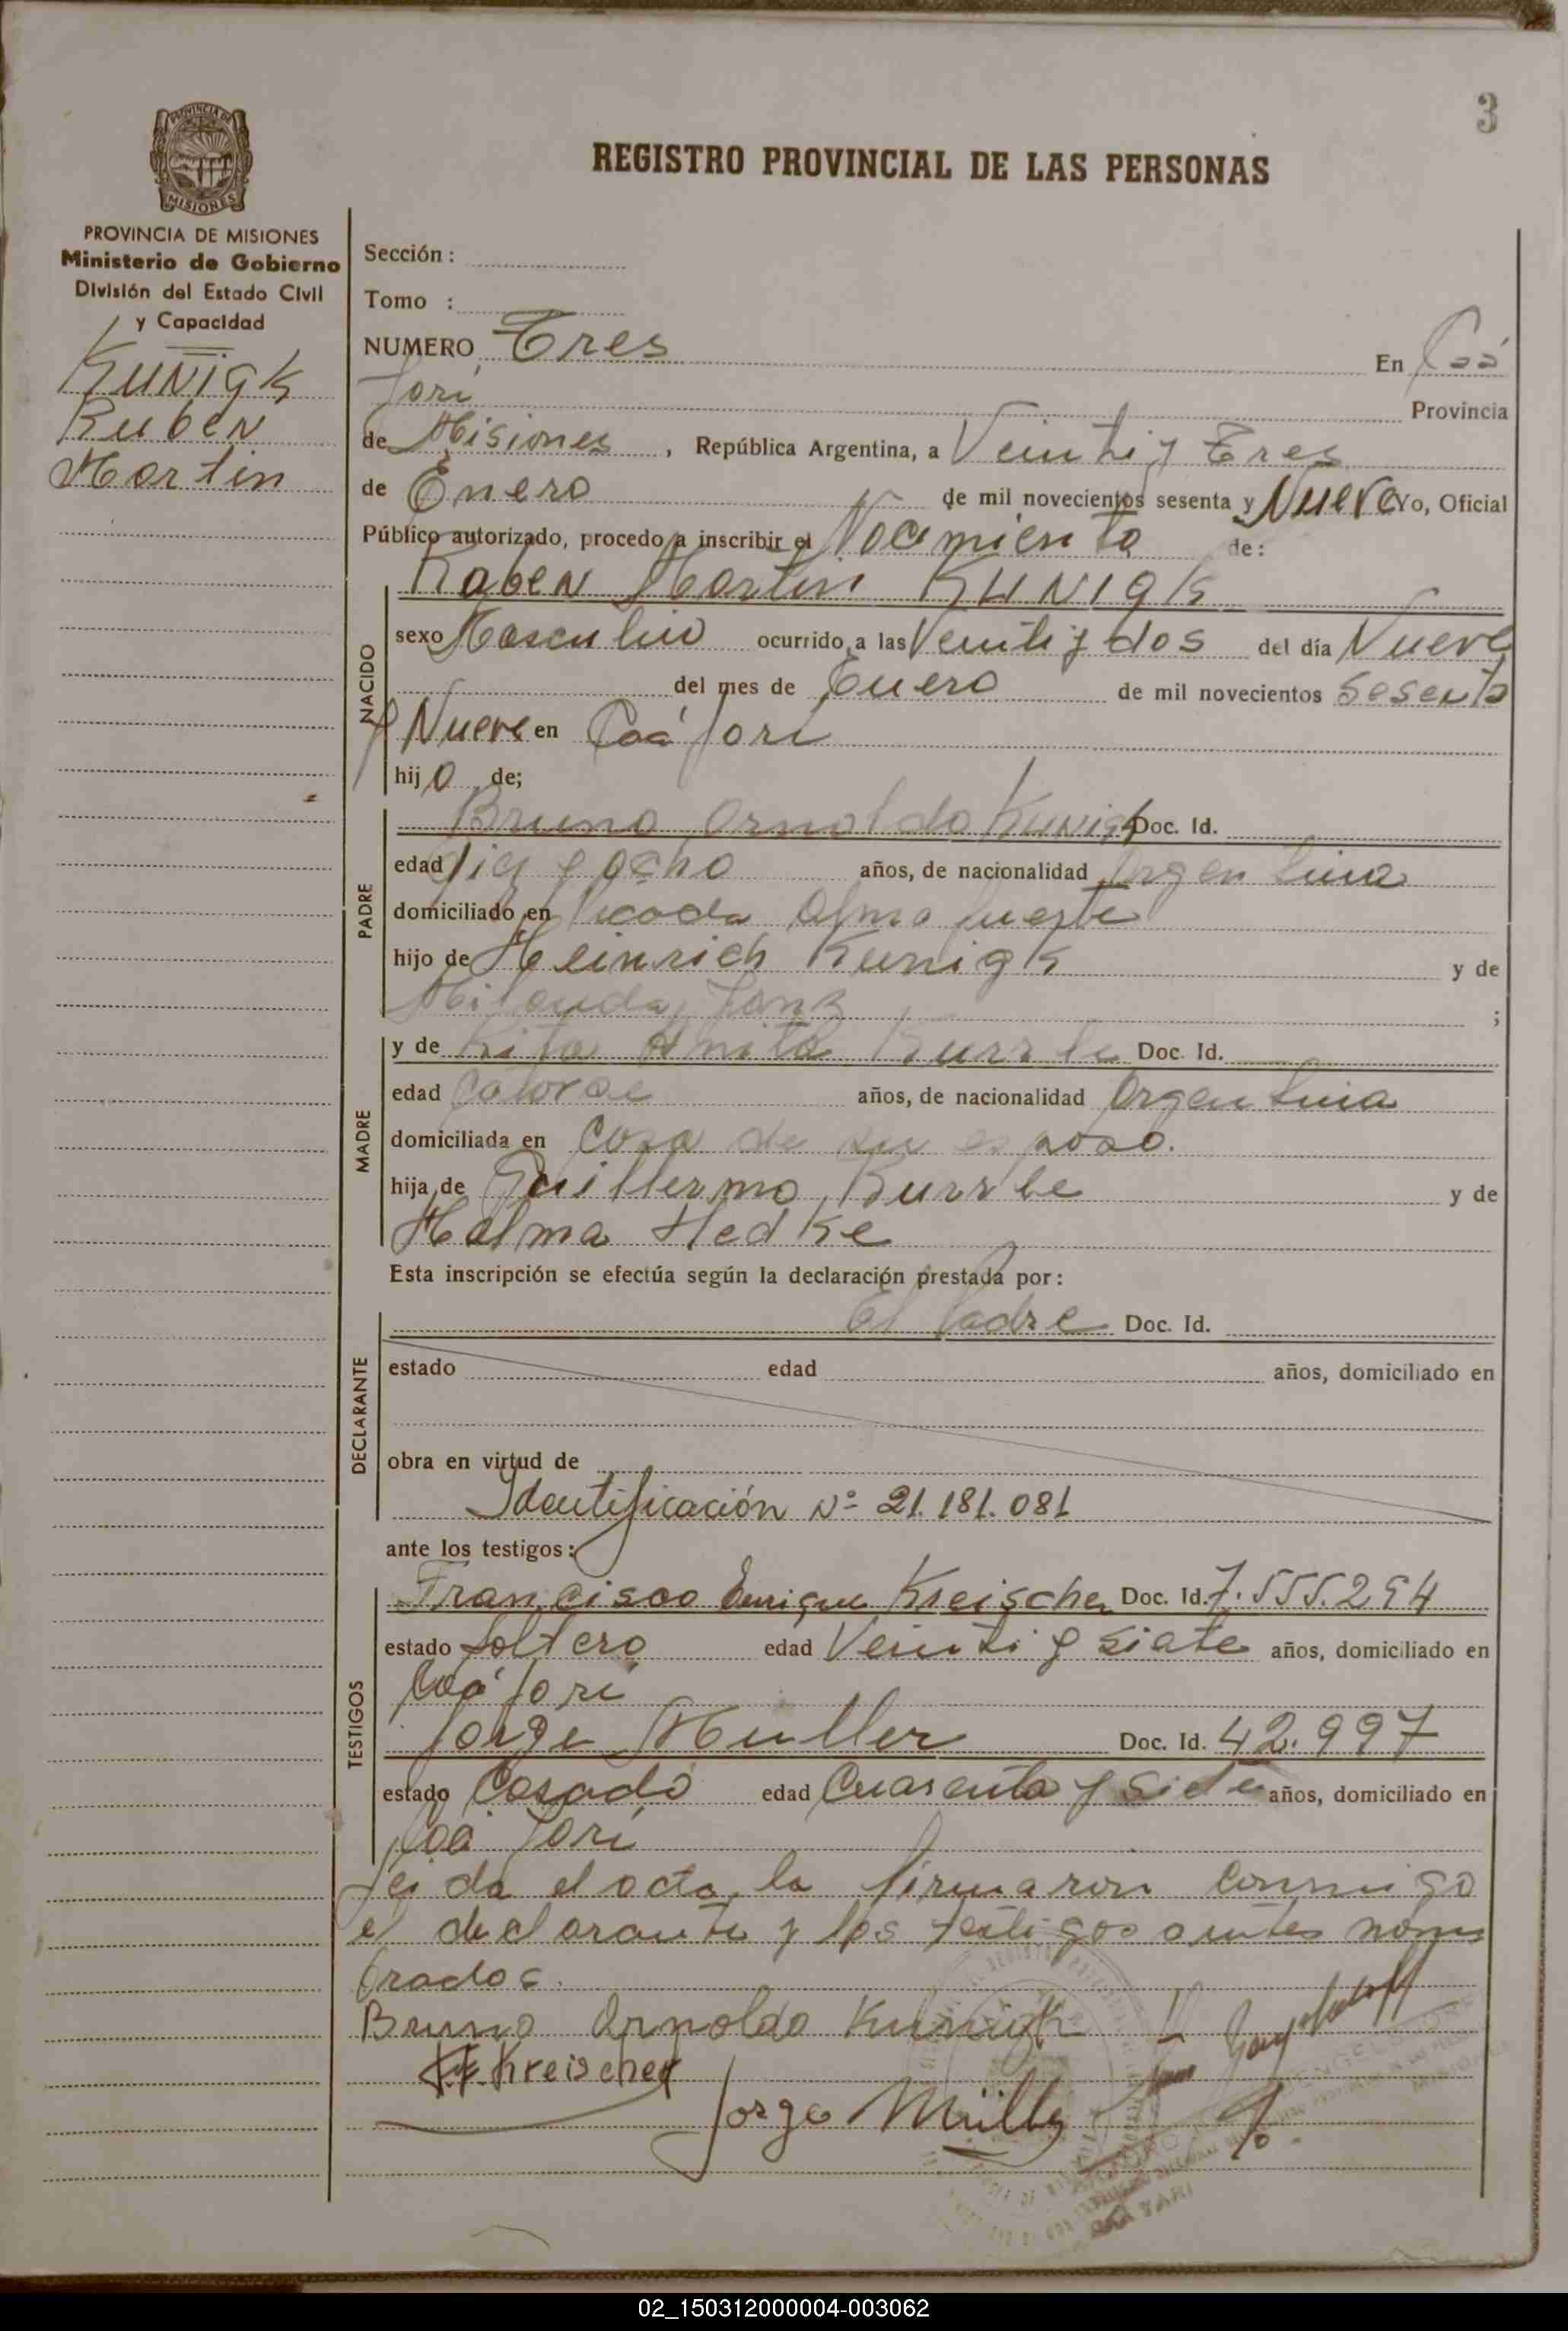 3
REGISTRO PROVINCIAL DE LAS PERSONAS
PROVINCIA DE
MISIONES
PROVINCIA DE MISIONES
Ministerio de Gobierno
División del Estado Civil
y Capacidad
KUNIGK
Ruben
Martin
Sección :
Tomo :
NUMERO Tres En Caá
Yari Provincia
de Misiones , República Argentina, a Veinti y Tres
de Enero de mil novecientos sesenta y Nueve Yo, Oficial
Público autorizado, procedo a inscribir el Nacimiento de:
Ruben Martin KUNIGK
NACIDO
sexo Masculino ocurrido a las Veinti y dos del día Nueve
del mes de Enero de mil novecientos Sesenta
y Nueve en Caá Yari
hijo de;
PADRE
Bruno Arnoldo Kunigk Doc. Id.
edad die y ocho años, de nacionalidad Argentina
domiciliado en Picada Alma fuerte
hijo de Heinrich Kunigk y de
Milanda ;
MADRE
y de Rita Anita Doc. Id.
edad Catorce años, de nacionalidad Argentina
domiciliada en Casa de su esposo.
hija de Guillermo y de
Halma Hedke
Esta inscripción se efectúa según la declaración prestada por:
DECLARANTE
el Padre Doc. Id.
estado edad años, domiciliado en
obra en virtud de
Identificación Nº 21.181.081
ante los testigos:
TESTIGOS
Francisco Enrique Kreischer Doc. Id. 7.555.294
estado Soltero edad Veinti y siete años, domiciliado en
Caá Yari
Jorge Muller Doc. Id. 42.997
estado Casado edad Cuarenta y siete años, domiciliado en
Caá Yari
Leida el acta, la firmaron conmigo
el declarante y los testigos antes nom
brados.
Bruno Arnoldo Kunigk
F.E. Kreischer
Jorge Müller
CAA YARI
02_150312000004-003062